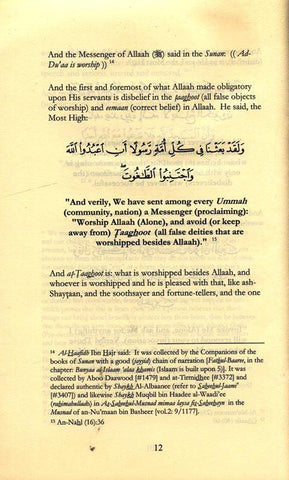 And the Messenger of Allaah (ﷺ) said in the Sunan: (( Ad-
Du'aa is worship )) 14
And the first and foremost of what Allaah made obligatory
upon His servants is disbelief in the taaghoot (all false objects
of worship) and eemaan (correct belief) in Allaah. He said, the
Most High:
وَلَقَدْ بَعَثْنَا فِي كُلِّ أُمَّةٍ رَّسُولًا أَنِ اعْبُدُوا اللَّهَ
وَاجْتَنِبُوا الطَّاغُوتَ
"And verily, We have sent among every Ummah
(community, nation) a Messenger (proclaiming):
"Worship Allaah (Alone), and avoid (or keep
away from) Taaghoot (all false deities that are
worshipped besides Allaah)." 15
And at-Taaghoot is: what is worshipped besides Allaah, and
whoever is worshipped and he is pleased with that, like ash-
Shaytaan, and the soothsayer and fortune-tellers, and the one
14 Al-Haafidh Ibn Hajr said: It was collected by the Companions of the
books of Sunan with a good (jayyid) chain of narration [Fathul-Baaree, in the
chapter: Bunyaa al-Islaam 'alaa khamis (Islaam is built upon 5)]. It was
collected by Aboo Daawood [#1479] and at-Tirmidhee [#3372] and
declared authentic by Shaykh Al-Albaanee (refer to Saheehul-Jaami'
[#3407]) and likewise Shaykh Muqbil bin Haadee al-Waadi'ee
(rahimahullaah) in As-Saheehul-Musnad mimaa laysa fis-Saheehayn in the
Musnad of an-Nu'maan bin Basheer [vol.2: 9/1177].
15 An-Nahl (16):36
12